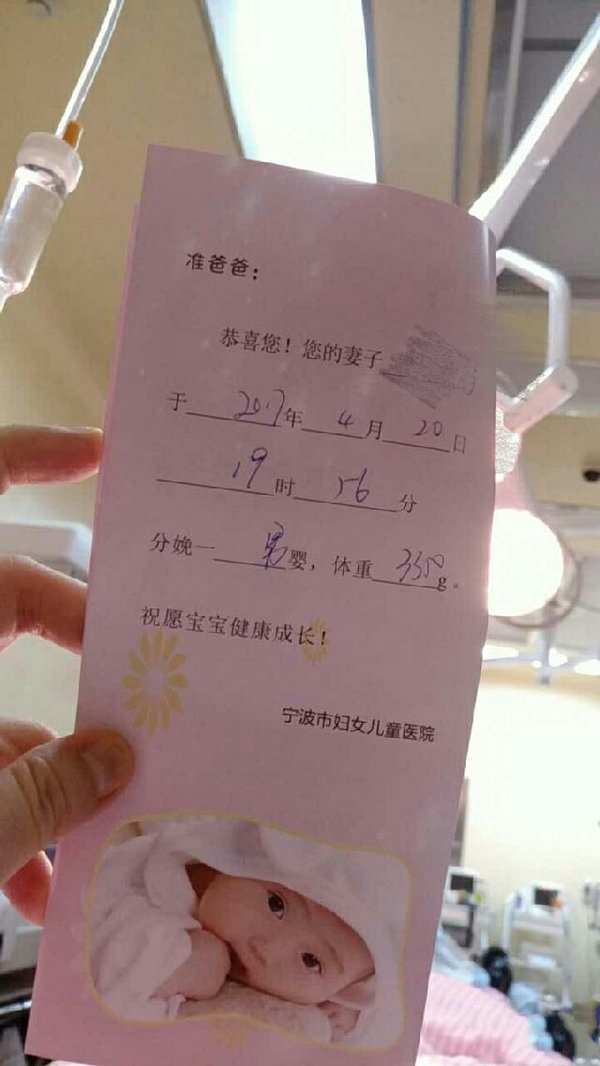 准爸爸：
恭喜您！您的妻子
于2017年4月20日
19时56分
分娩一男婴，体重3350g。
祝愿宝宝健康成长！
宁波市妇女儿童医院